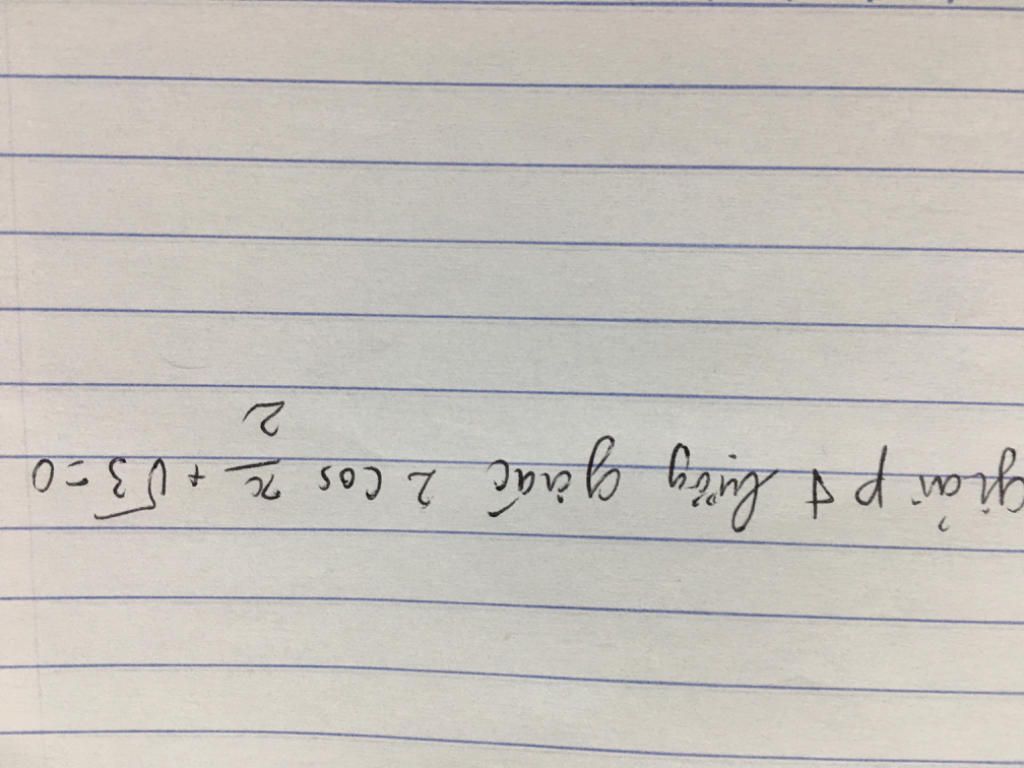 giải pt lượng giác 2 cos x/2 + √3 = 0